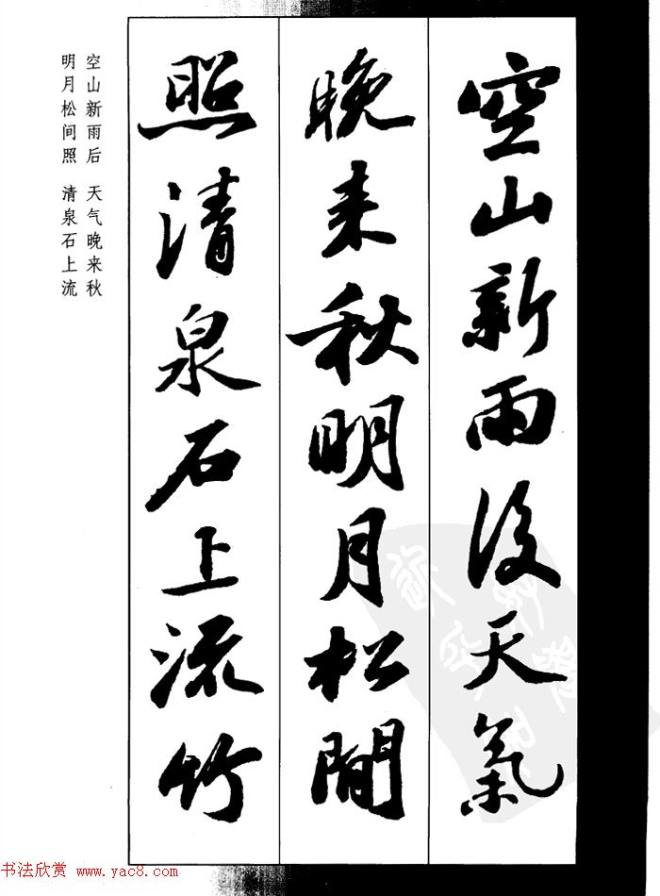 空山新雨後天氣
晚来秋明月松間
照清泉石上流竹
空山新雨后 天气晚来秋
明月松间照 清泉石上流
书法欣赏 www.yac8.com